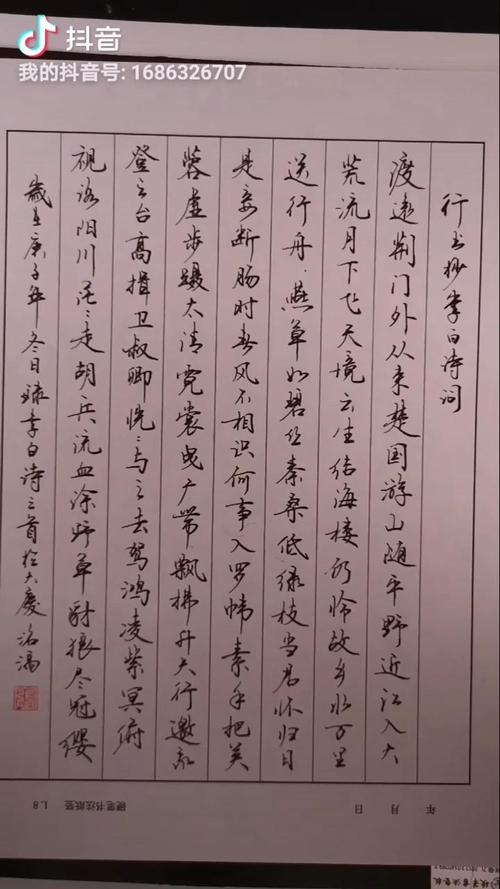 抖音
我的抖音号: 1686326707
行书抄李白诗词
渡远荆门外从来楚国游山随平野近江入大
荒流月下飞天境云生结海楼仍怜故乡水万里
送行舟燕草如碧丝秦桑低绿枝当君怀归日
是妾断肠时春风不相识何事入罗帏素手把芙
蓉虚步蹑太清霓裳曳广带飘拂升天行邀我
登云台高揖卫叔卿恍〻与之去驾鸿凌紫冥俯
视洛阳川茫〻走胡兵流血涂野草豺狼尽冠缨
岁在庚子年冬日录李白诗三首於大庆
年 月 日
1.8